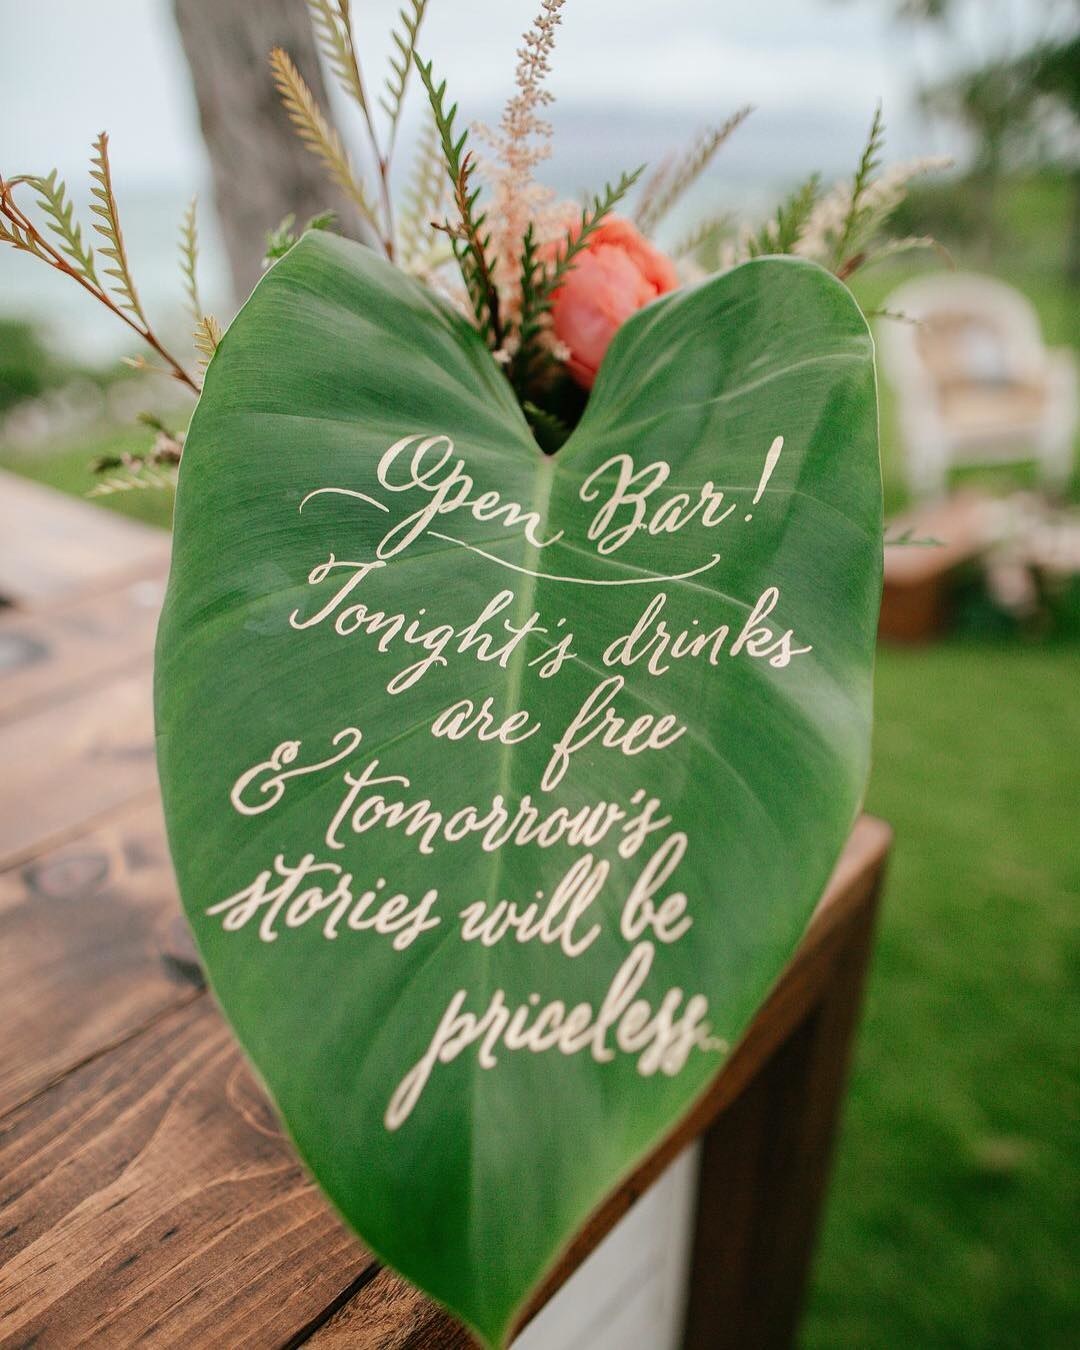 Open Bar!
Tonight's drinks
are free
& tomorrow's
stories will be
priceless...